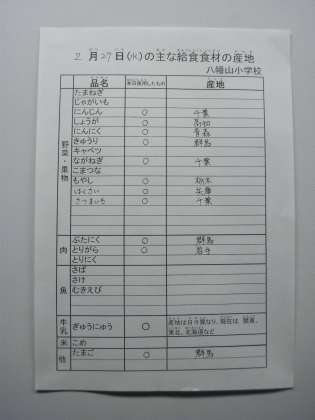 2月27日(水)の主な給食食材の産地
八幡山小学校
品名 本日使用したもの 産地
野菜・果物
たまねぎ
じゃがいも
にんじん ○ 千葉
しょうが ○ 高知
にんにく ○ 青森
きゅうり ○ 群馬
キャベツ
ながねぎ ○ 千葉
こまつな
もやし ○ 栃木
はくさい ○ 兵庫
さつまいも ○ 千葉
肉
ぶたにく ○ 群馬
とりがら ○ 岩手
とりにく
魚
さば
さけ
むきえび
牛乳
ぎゅうにゅう ○ 産地は日々異なり、現在は 関東、
東北、北海道など
米 こめ
他 たまご ○ 群馬